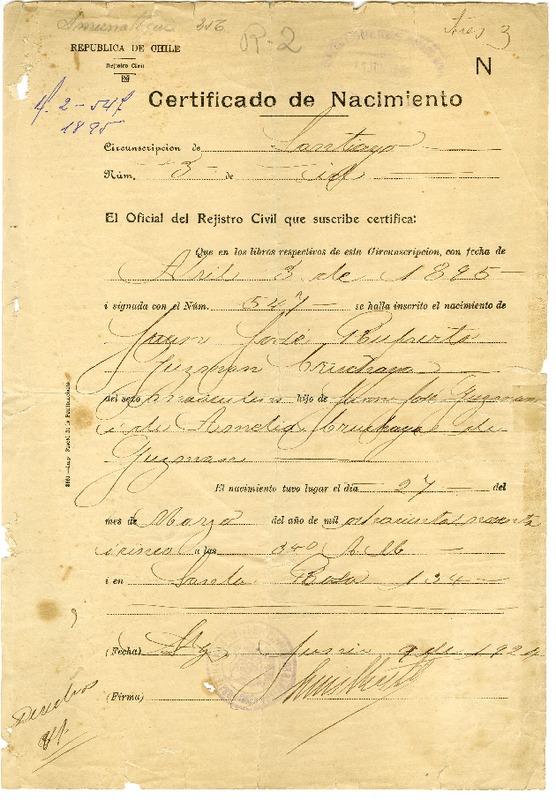 212
OP-2
Tres 3
REPUBLICA DE CHILE
Rejistro Civil
N
Nº 2-547
1895
Certificado de Nacimiento
Circunscripcion de Santiago
Núm. 3 de id
El Oficial del Rejistro Civil que suscribe certifica:
Que en los libros respectivos de esta Circunscripcion, con fecha de
Abril 3 de 1895
i signada con el Núm. 547 se halla inscrito el nacimiento de
Juan José Ruperto
Guzman Cruchaga
del sexo Masculino hijo de Juan José Guzman
i de Amelia Cruchaga de
Guzman
El nacimiento tuvo lugar el dia 27 del
mes de Marzo del año de mil ochocientos noventa
i cinco a las A M
i en Santa Rosa 134
(Fecha) Stgo Junio 9 de 192
(Firma)
Derechos